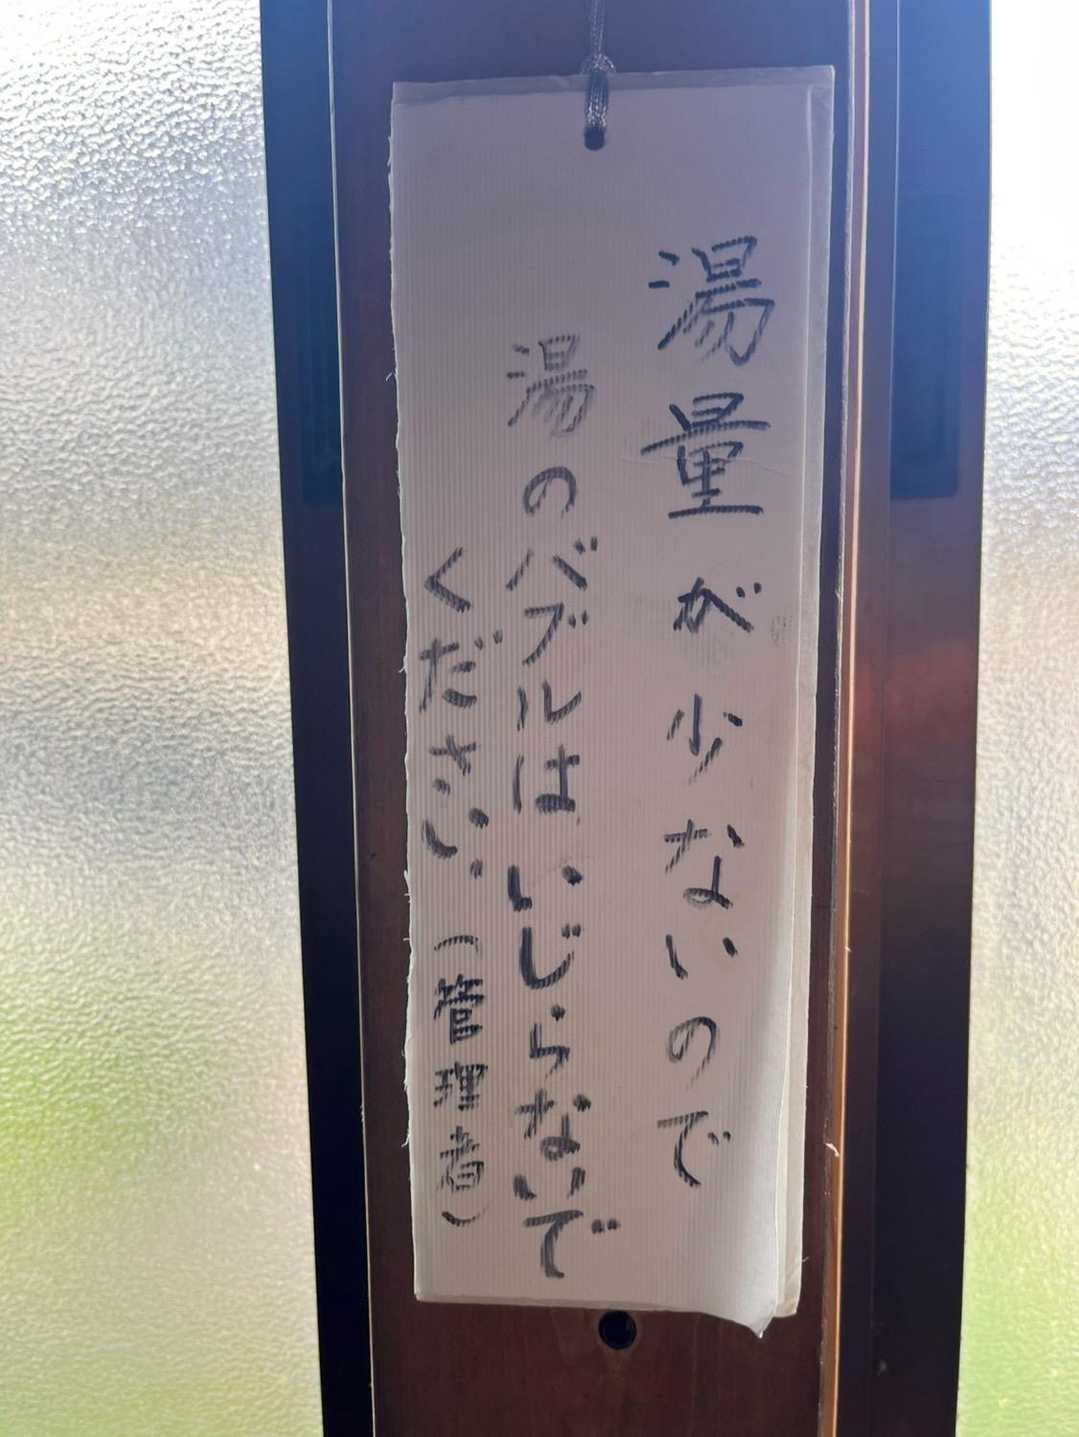 湯量が少ないので
湯のバブルはいじらないで
ください。(管理者)